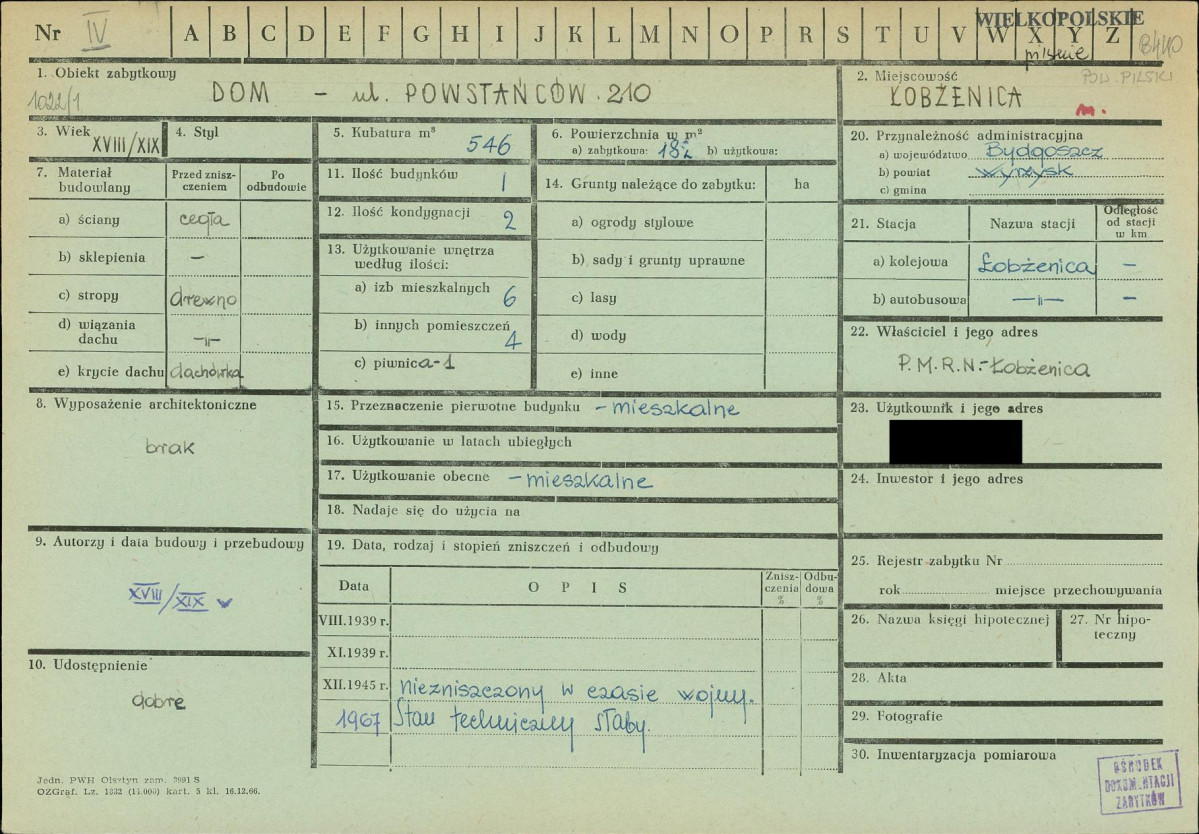 Nr IV A B C D E F G H I J K L M N O P R S T U V W X Y Z
WIELKOPOLSKIE
pilskie
8440
POW. PILSKI
1. Obiekt zabytkowy
1022/1
DOM - ul. POWSTAŃCÓW 210
2. Miejscowość
ŁOBŻENICA
m.
3. Wiek XVIII/XIX
4. Styl
5. Kubatura m³ 546
6. Powierzchnia w m²
a) zabytkowa: 182 b) użytkowa:
7. Materiał budowlany
Przed zniszczeniem
Po odbudowie
a) ściany cegła
b) sklepienia –
c) stropy drewno
d) wiązania dachu –〃–
e) krycie dachu dachówka
11. Ilość budynków 1
12. Ilość kondygnacji 2
13. Użytkowanie wnętrza według ilości:
a) izb mieszkalnych 6
b) innych pomieszczeń 4
c) piwnica-1
14. Grunty należące do zabytku: ha
a) ogrody stylowe
b) sady i grunty uprawne
c) lasy
d) wody
e) inne
20. Przynależność administracyjna
a) województwo Bydgoszcz
b) powiat Wyrzysk
c) gmina
21. Stacja
Nazwa stacji
Odległość od stacji w km
a) kolejowa Łobżenica –
b) autobusowa –〃– –
22. Właściciel i jego adres
P.M.R.N.-Łobżenica
8. Wyposażenie architektoniczne
brak
15. Przeznaczenie pierwotne budynku – mieszkalne
16. Użytkowanie w latach ubiegłych
17. Użytkowanie obecne – mieszkalne
18. Nadaje się do użycia na
23. Użytkownik i jego adres
24. Inwestor i jego adres
9. Autorzy i data budowy i przebudowy
XVIII/XIX
19. Data, rodzaj i stopień zniszczeń i odbudowy
Data
OPIS
Zniszczenia %
Odbudowa %
VIII.1939 r.
XI.1939 r.
XII.1945 r. niezniszczony w czasie wojny.
1967 Stan techniczny słaby.
10. Udostępnienie
dobre
25. Rejestr zabytku Nr
rok miejsce przechowywania
26. Nazwa księgi hipotecznej
27. Nr hipoteczny
28. Akta
29. Fotografie
30. Inwentaryzacja pomiarowa
OŚRODEK
DOKUMENTACJI
ZABYTKÓW
Jedn. PWH Olsztyn zam. 3991 S
OZGraf. Lz. 1332 (14.000) kart. 5 kl. 16.12.66.